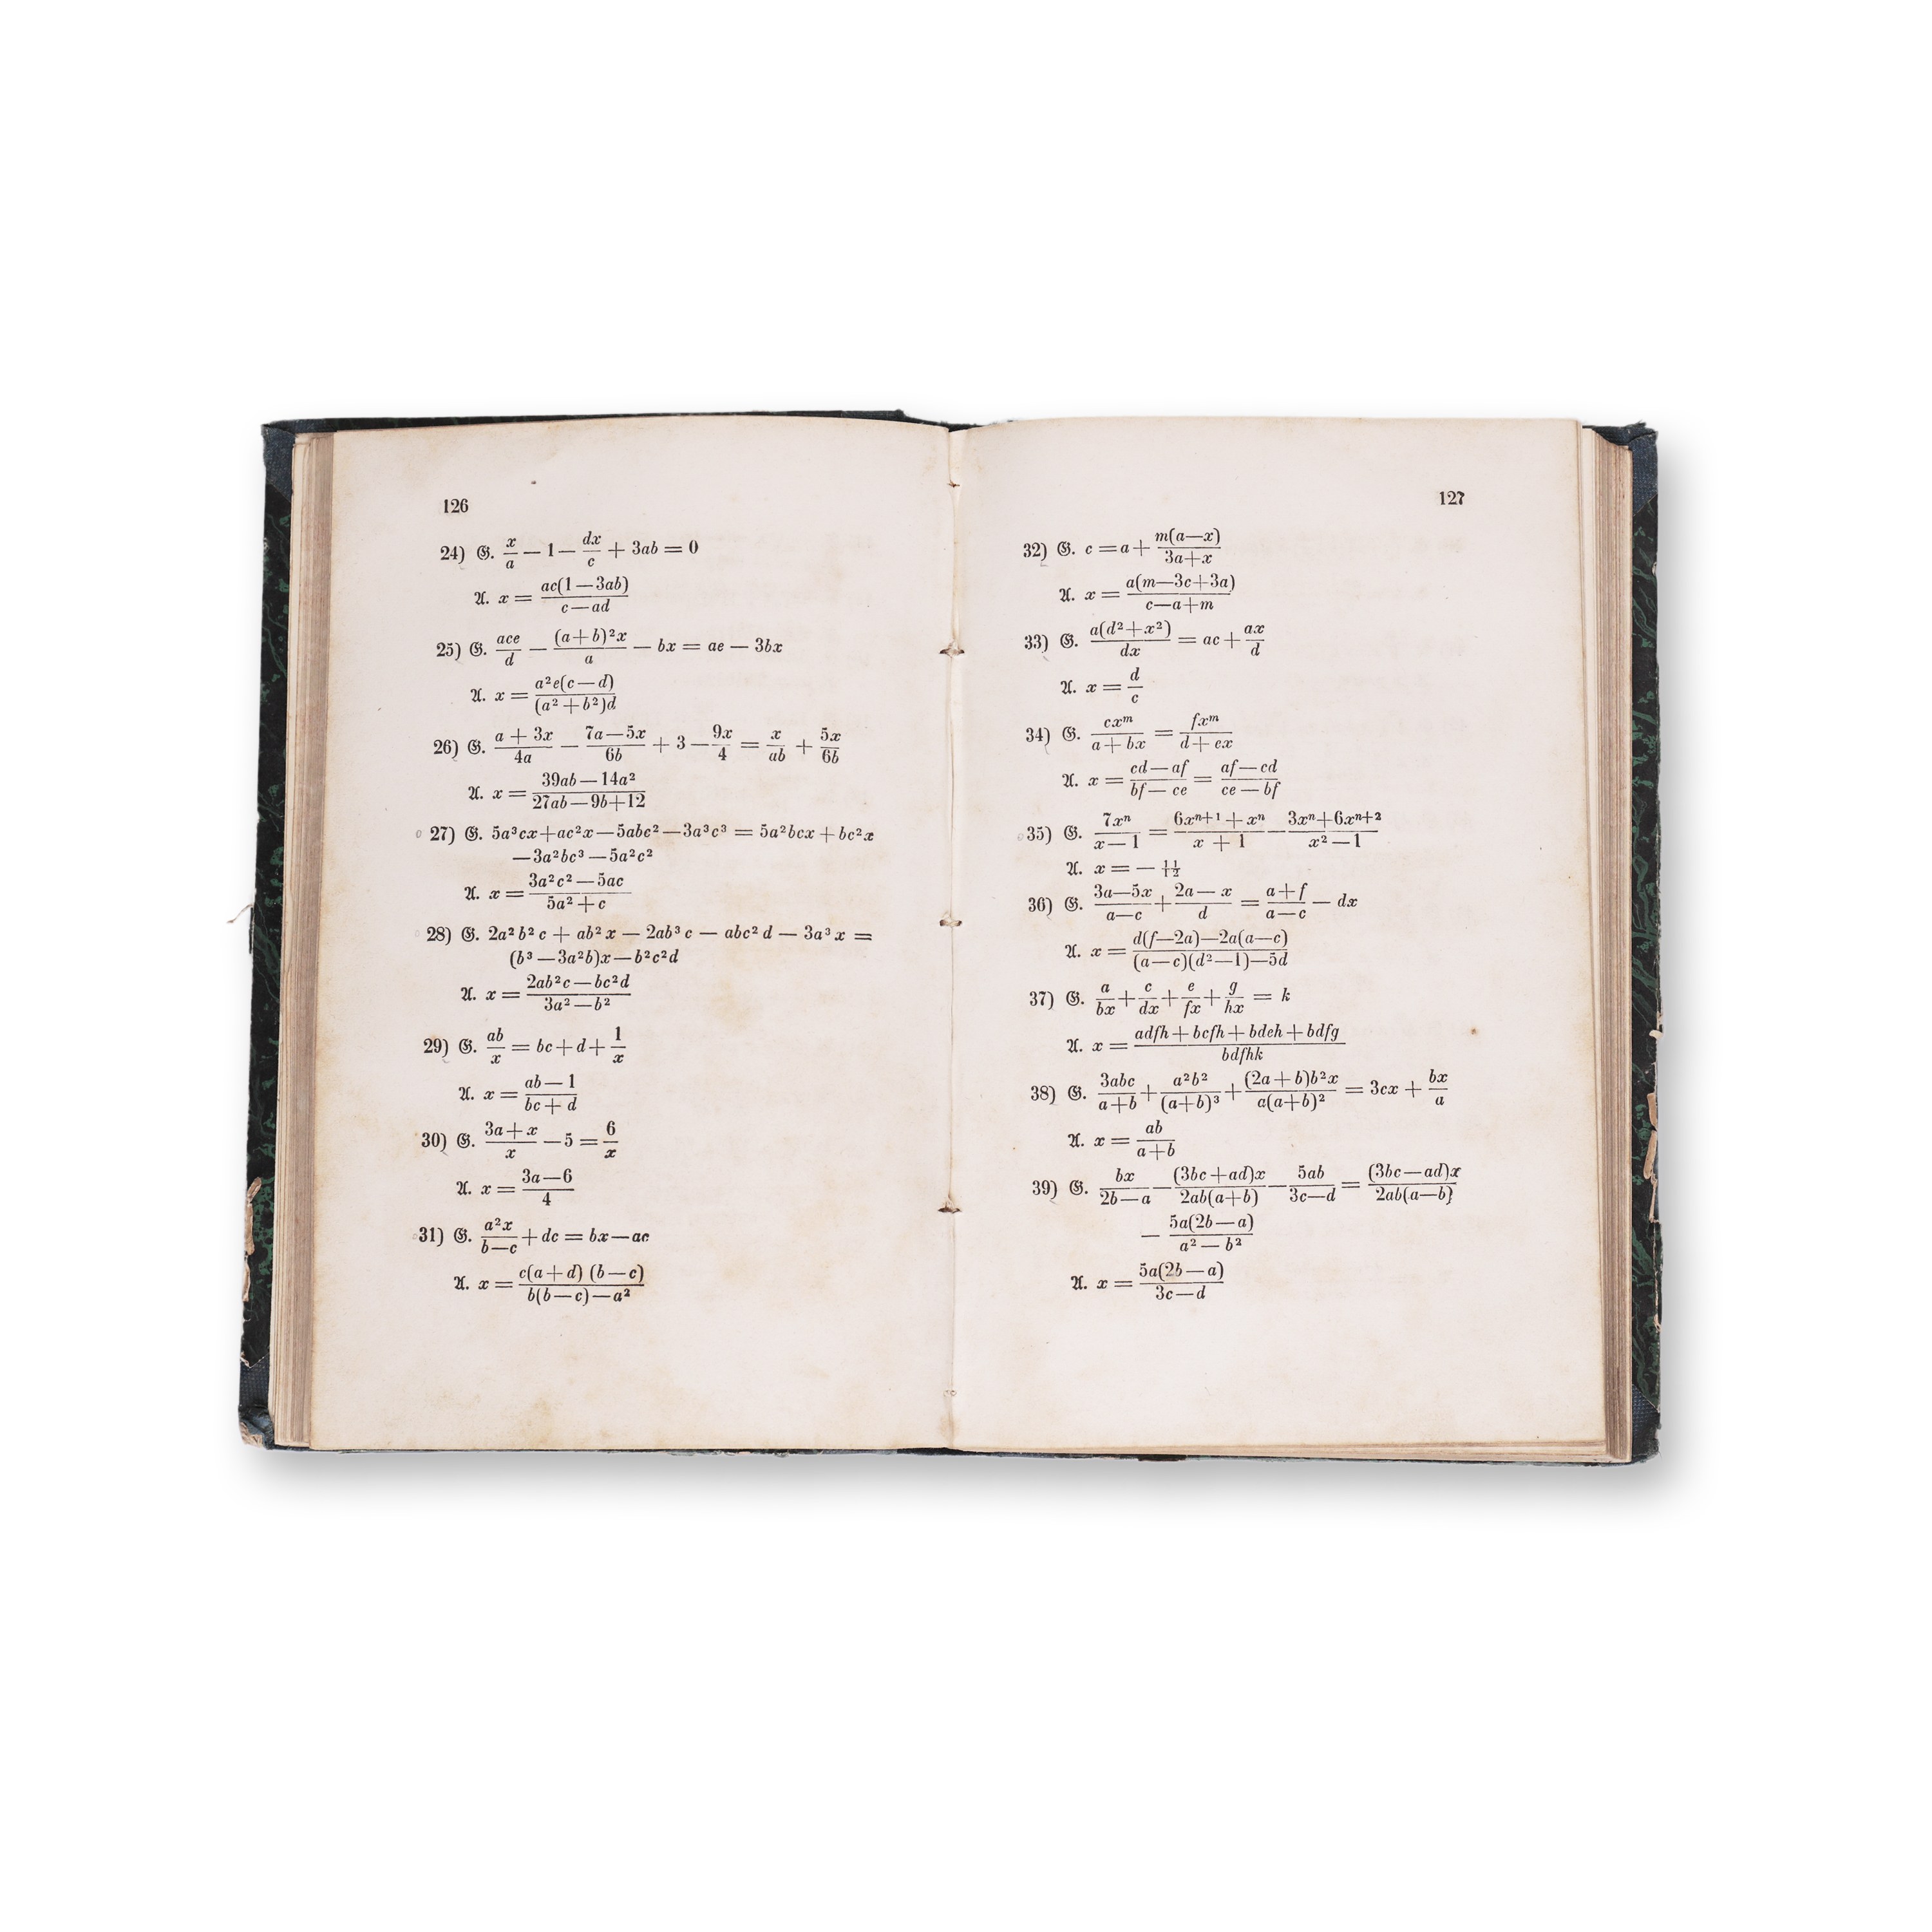 126
24) 𝔊. x/a — 1 — dx/c + 3ab = 0
𝔄. x = ac(1 — 3ab)/(c — ad)
25) 𝔊. ace/d — (a+b)²x/a — bx = ae — 3bx
𝔄. x = a²e(c — d)/((a² + b²)d)
26) 𝔊. (a + 3x)/4a — (7a — 5x)/6b + 3 — 9x/4 = x/ab + 5x/6b
𝔄. x = (39ab — 14a²)/(27ab — 9b + 12)
27) 𝔊. 5a³cx + ac²x — 5abc² — 3a³c³ = 5a²bcx + bc²x
— 3a²bc³ — 5a²c²
𝔄. x = (3a²c² — 5ac)/(5a² + c)
28) 𝔊. 2a²b²c + ab²x — 2ab³c — abc²d — 3a³x =
(b³ — 3a²b)x — b²c²d
𝔄. x = (2ab²c — bc²d)/(3a² — b²)
29) 𝔊. ab/x = bc + d + 1/x
𝔄. x = (ab — 1)/(bc + d)
30) 𝔊. (3a + x)/x — 5 = 6/x
𝔄. x = (3a — 6)/4
31) 𝔊. a²x/(b — c) + dc = bx — ac
𝔄. x = c(a + d) (b — c)/(b(b — c) — a²)
127
32) 𝔊. c = a + m(a — x)/(3a + x)
𝔄. x = a(m — 3c + 3a)/(c — a + m)
33) 𝔊. a(d² + x²)/dx = ac + ax/d
𝔄. x = d/c
34) 𝔊. cxᵐ/(a + bx) = fxᵐ/(d + ex)
𝔄. x = (cd — af)/(bf — ce) = (af — cd)/(ce — bf)
35) 𝔊. 7xⁿ/(x — 1) = (6xⁿ⁺¹ + xⁿ)/(x + 1) — (3xⁿ + 6xⁿ⁺²)/(x² — 1)
𝔄. x = — 11/12
36) 𝔊. (3a — 5x)/(a — c) + (2a — x)/d = (a + f)/(a — c) — dx
𝔄. x = (d(f — 2a) — 2a(a — c))/((a — c)(d² — 1) — 5d)
37) 𝔊. a/bx + c/dx + e/fx + g/hx = k
𝔄. x = (adfh + bcfh + bdeh + bdfg)/bdfhk
38) 𝔊. 3abc/(a + b) + a²b²/(a+b)³ + (2a + b)b²x/(a(a+b)²) = 3cx + bx/a
𝔄. x = ab/(a + b)
39) 𝔊. bx/(2b — a) — (3bc + ad)x/(2ab(a+b)) — 5ab/(3c — d) = (3bc — ad)x/(2ab(a — b))
— 5a(2b — a)/(a² — b²)
𝔄. x = 5a(2b — a)/(3c — d)